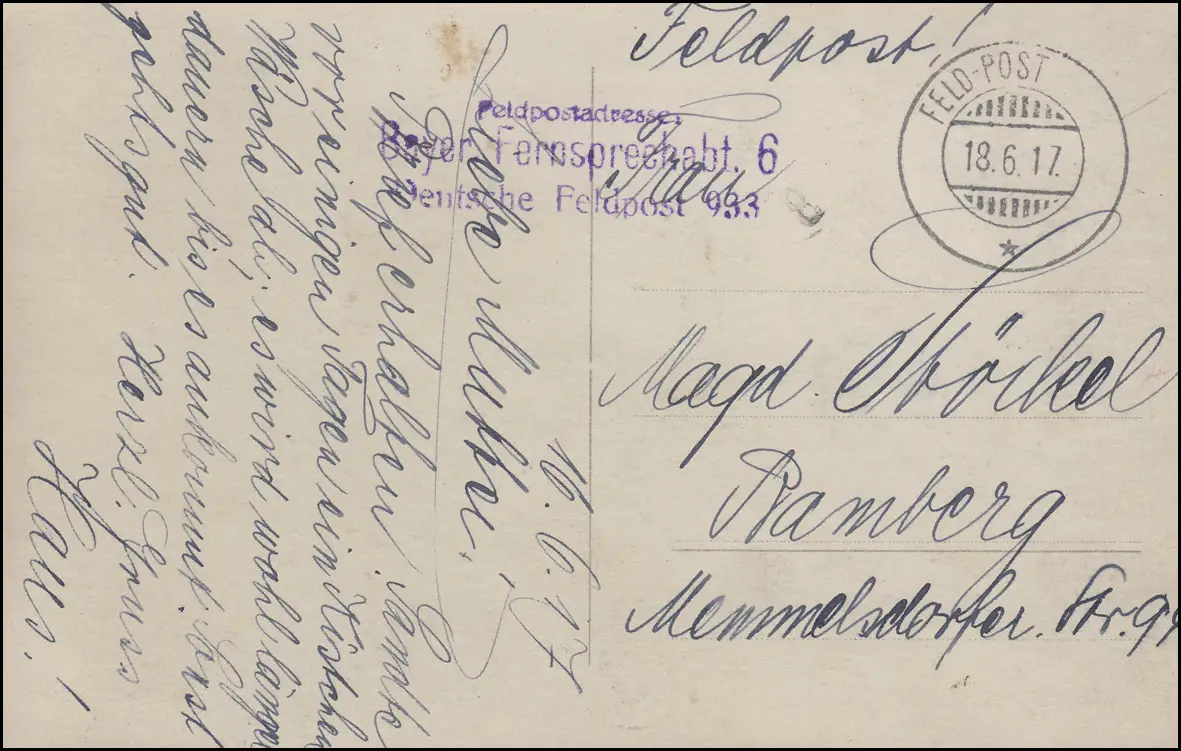 Feldpost!
FELD-POST
18.6.17.
Feldpostadresse:
Bayer. Fernsprechabt. 6
Deutsche Feldpost 933
Frau
Magd.
Bamberg
Memmelsdorfer. Str.
16. 6. 17
Liebe Mutter,
erhalten. Sandte
vor einigen Tagen ein Kistchen
Wäsche ab; es wird wohl länger
dauern bis es ankommt. Sonst
geht's gut. Herzl. Gruss
Hans!